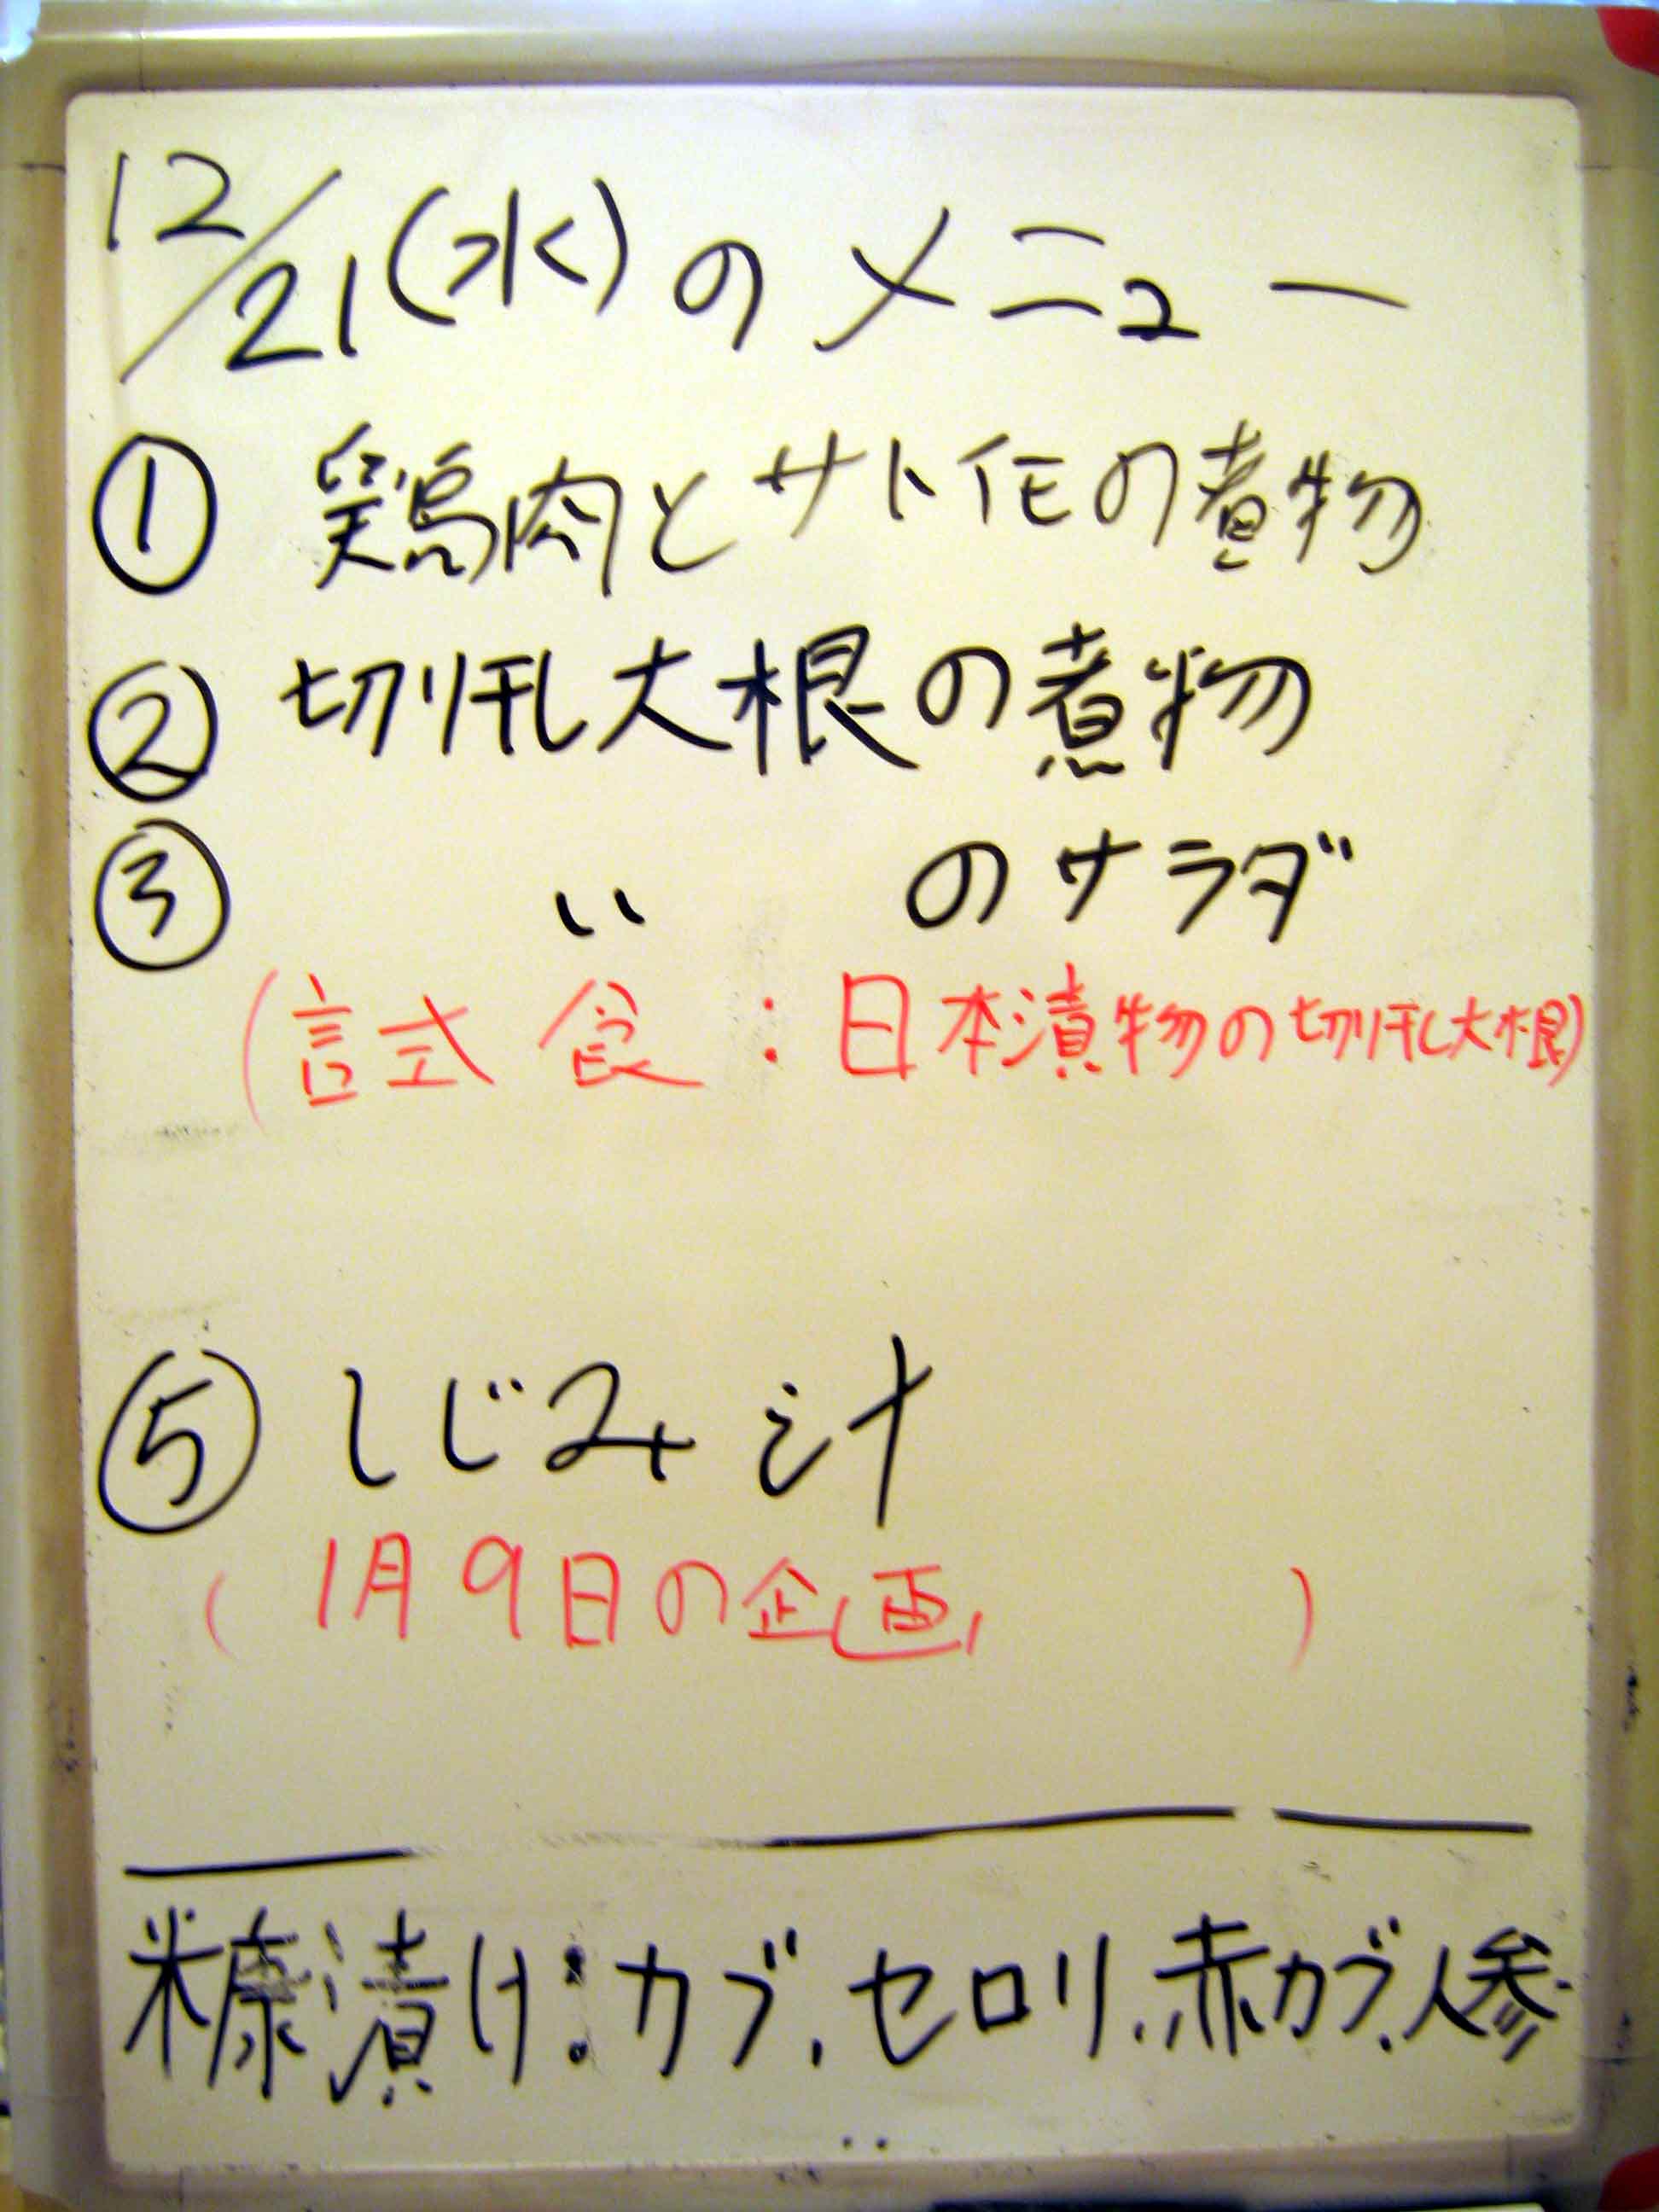 12/21(水)のメニュー
① 鶏肉とサトイモの煮物
② 切り干し大根の煮物
③ 〃 のサラダ
(試食:日本漬物の切り干し大根)
⑤ しじみ汁
(1月9日の企画 )
米糠漬け:カブ、セロリ、赤カブ、人参